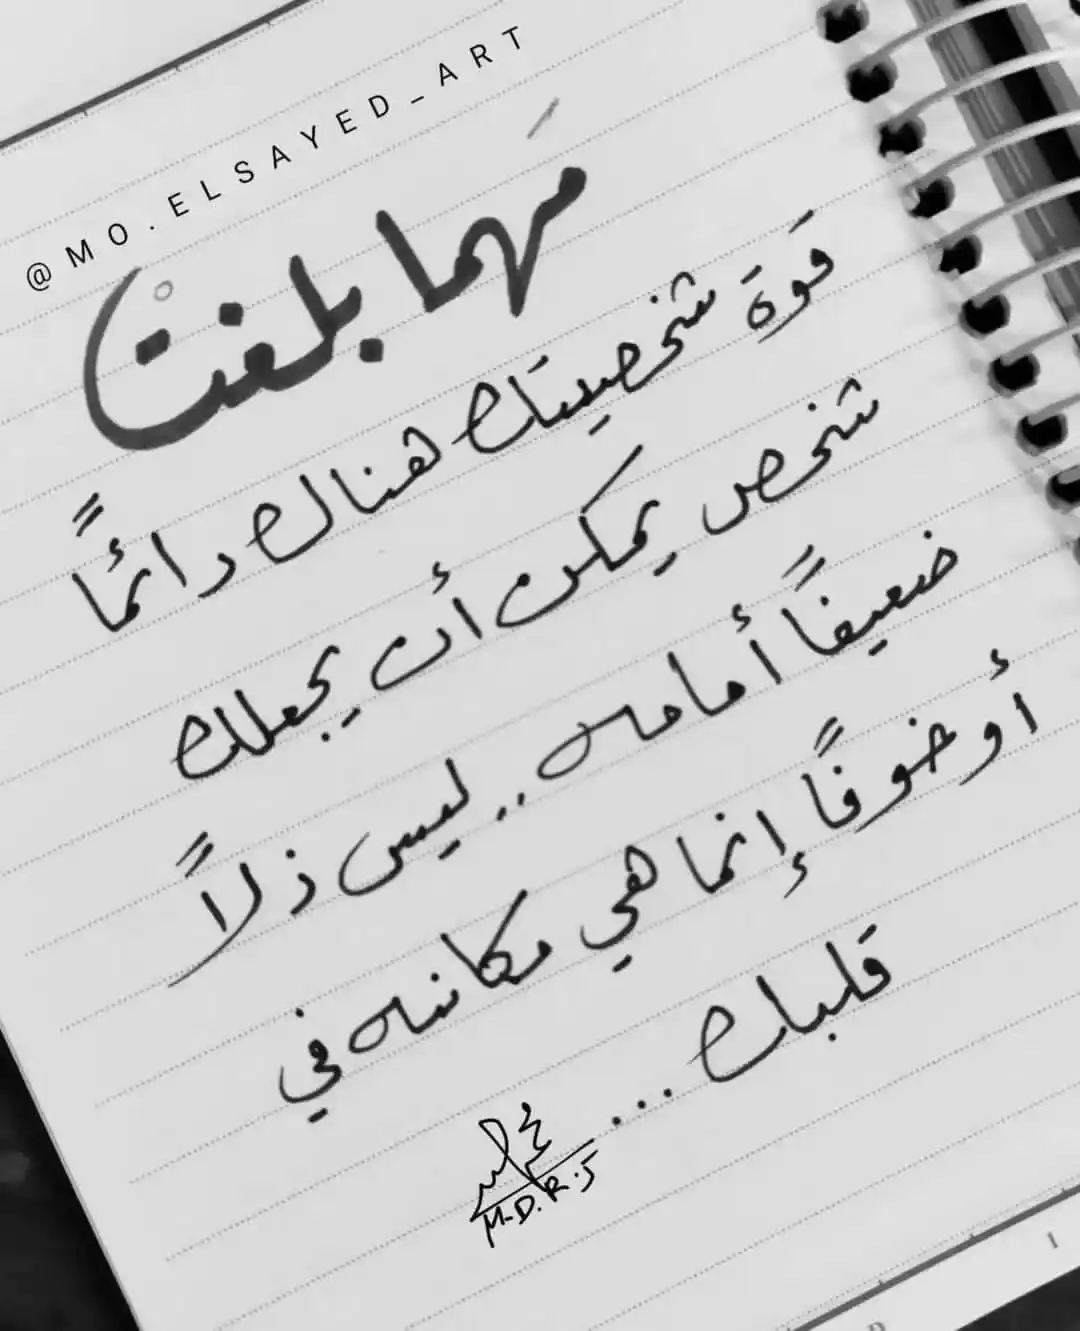 @MO.ELSAYED_ART
مَهما بلغتْ
قوّة شخصيتك هناك دائمًا
شخص يمكن أن يجعلك
ضعيفًا أمامه .. ليس ذلاً
أو خوفًا إنما هي مكانته في
قلبك ...
M.D.R.5